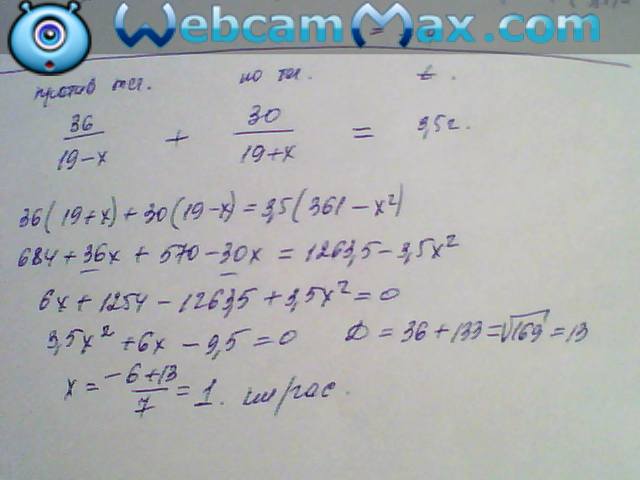 WebcamMax.com
против теч. по теч. t.
36/(19-x) + 30/(19+x) = 3,5ч.
36(19+x)+30(19-x)=3,5(361-x²)
684+36x+570-30x=1263,5-3,5x²
6x+1254-1263,5+3,5x²=0
3,5x²+6x-9,5=0 D=36+133=√169=13
x=(-6+13)/7=1. км/час.